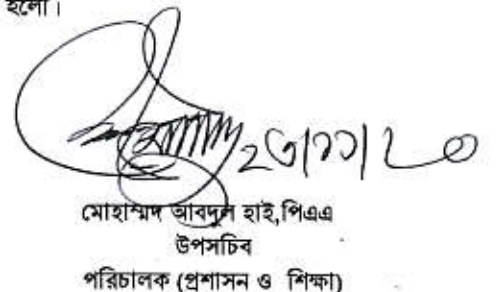 হলো।
মোহাম্মদ আবদুল হাই,পিএএ
উপসচিব
পরিচালক (প্রশাসন ও শিক্ষা)